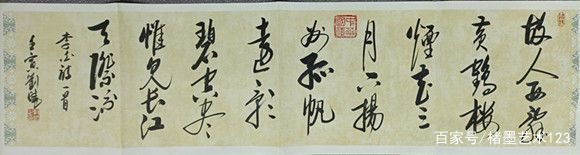 故人西辞
黄鶴楼
煙花三
月下揚
州孤帆
遠影
碧空尽
惟見長江
天際流
李白詩一首
壬寅劉
百家号/楮墨艺术123